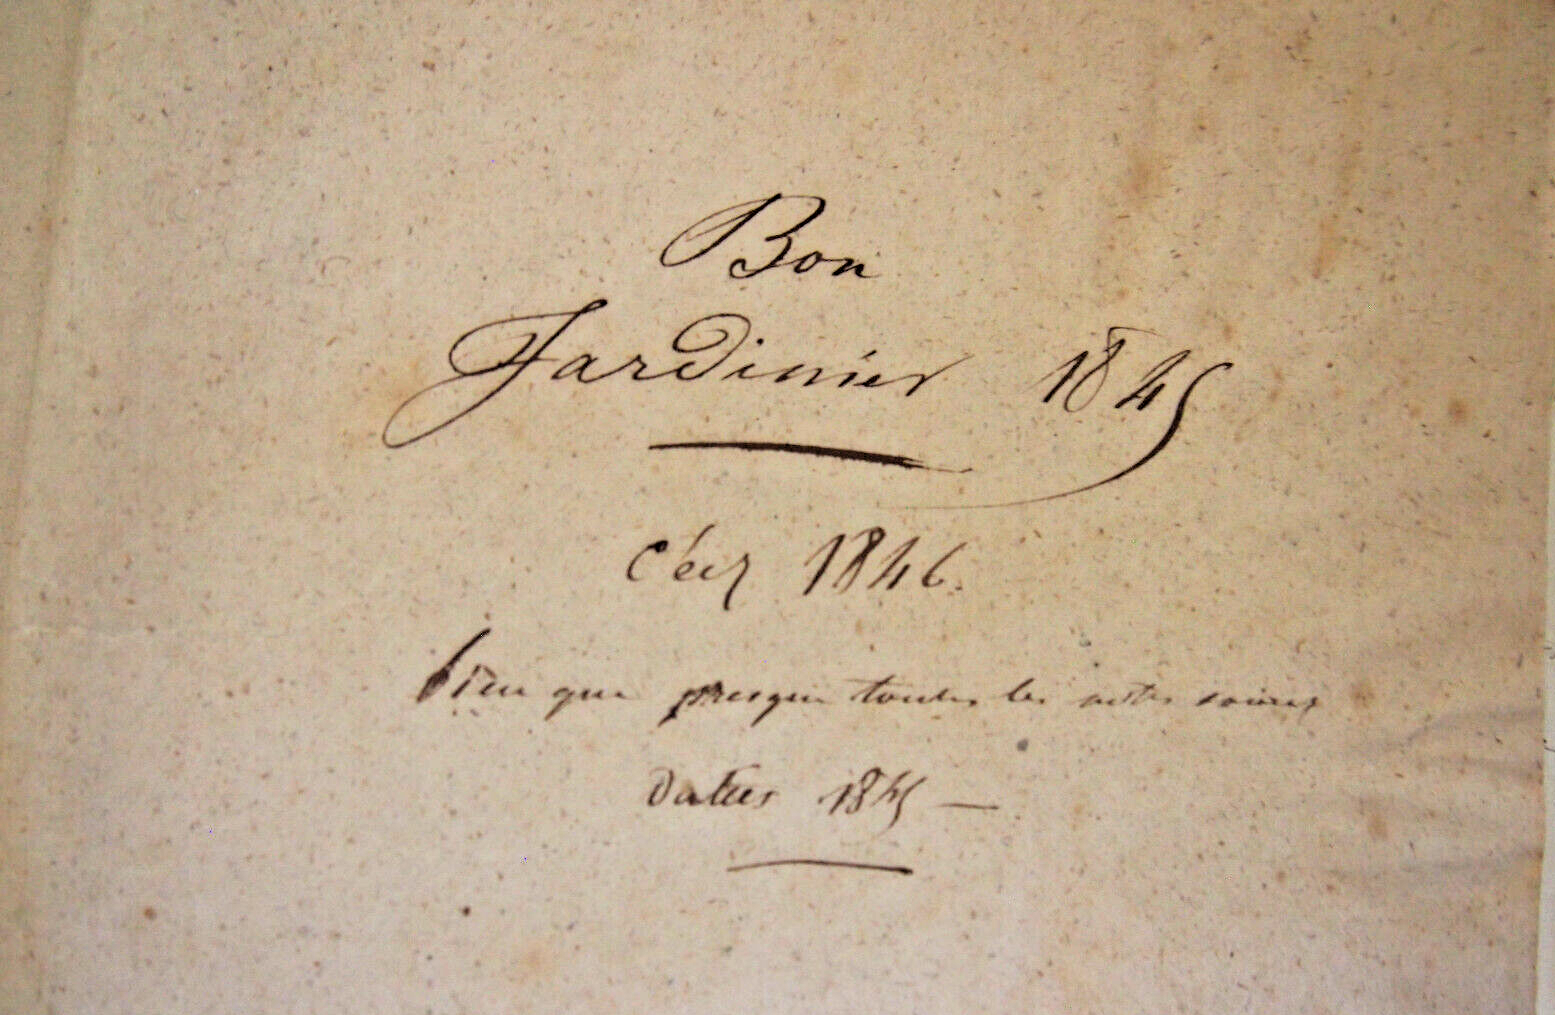 Bon
Jardinier 1845
c'est 1846.
bien que presque toutes les notes soient
datées 1845 —